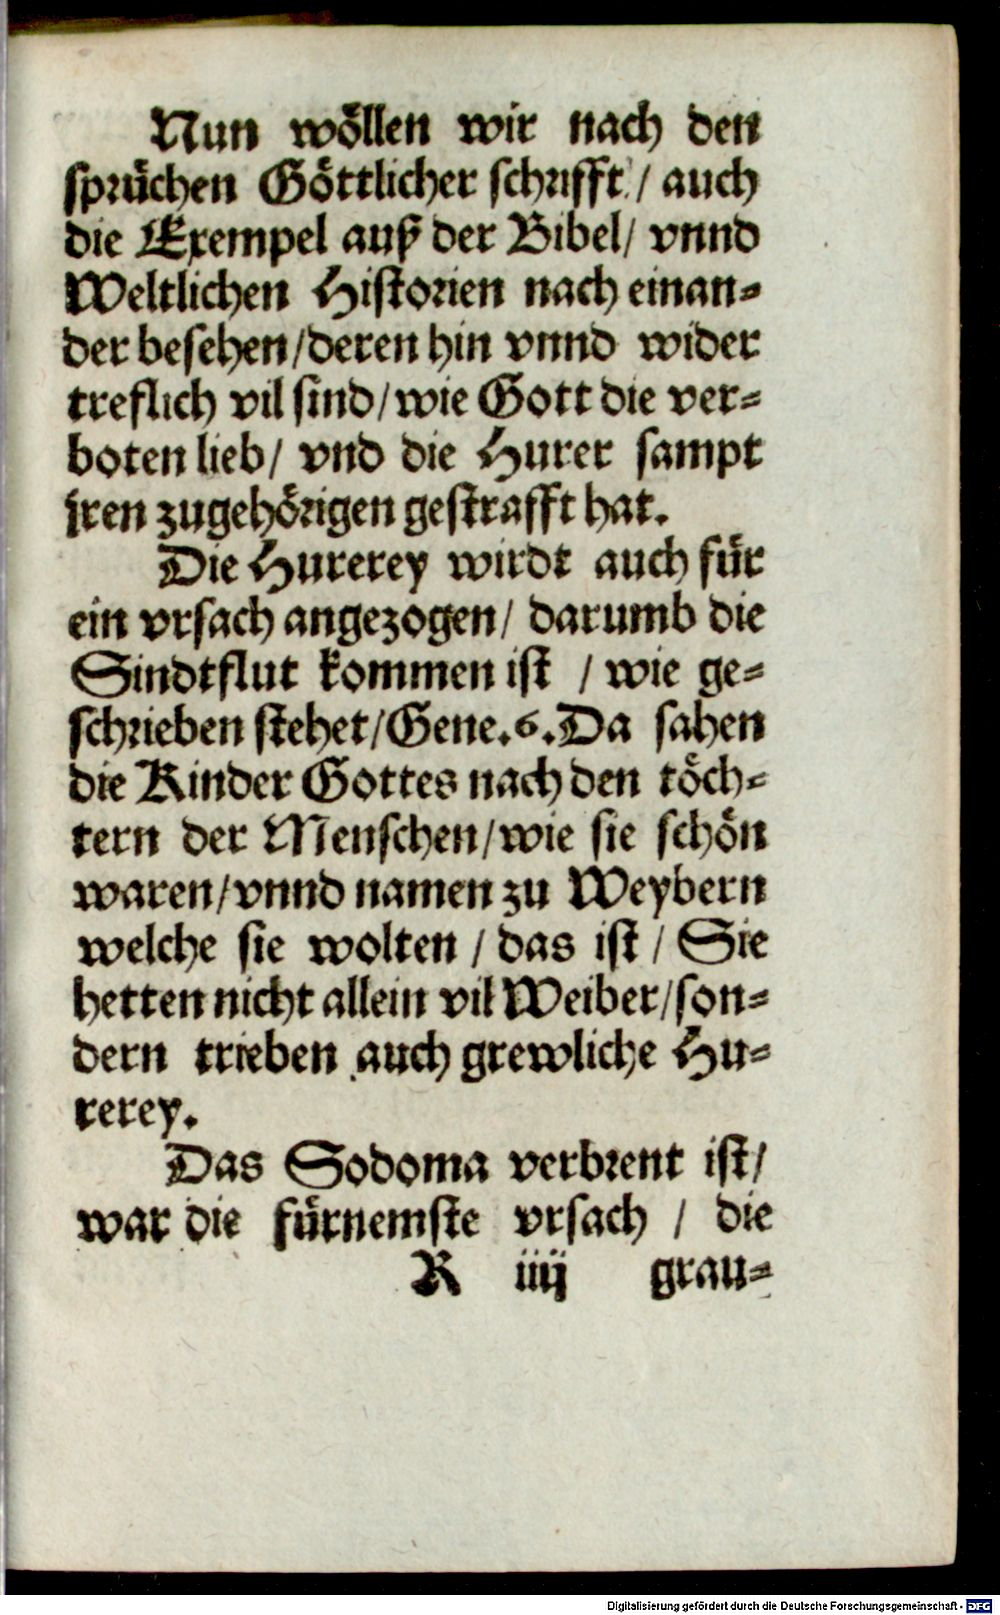 Nun wöllen wir nach den
sprüchen Göttlicher schrifft / auch
die Exempel auß der Bibel / vnnd
Weltlichen Historien nach einan⸗
der besehen / deren hin vnnd wider
treflich vil sind / wie Gott die ver⸗
boten lieb / vnd die Hurer sampt
jren zugehörigen gestrafft hat.
Die Hurerey wirdt auch für
ein vrsach angezogen / darumb die
Sindtflut kommen ist / wie ge⸗
schrieben stehet / Gene.6. Da sahen
die Kinder Gottes nach den töch⸗
tern der Menschen / wie sie schön
waren / vnnd namen zu Weybern
welche sie wolten / das ist / Sie
hetten nicht allein vil Weiber / son⸗
dern trieben auch grewliche Hu⸗
rerey.
Das Sodoma verbrent ist /
war die fürnemste vrsach / die
K iiij grau⸗
Digitalisierung gefördert durch die Deutsche Forschungsgemeinschaft - DFG